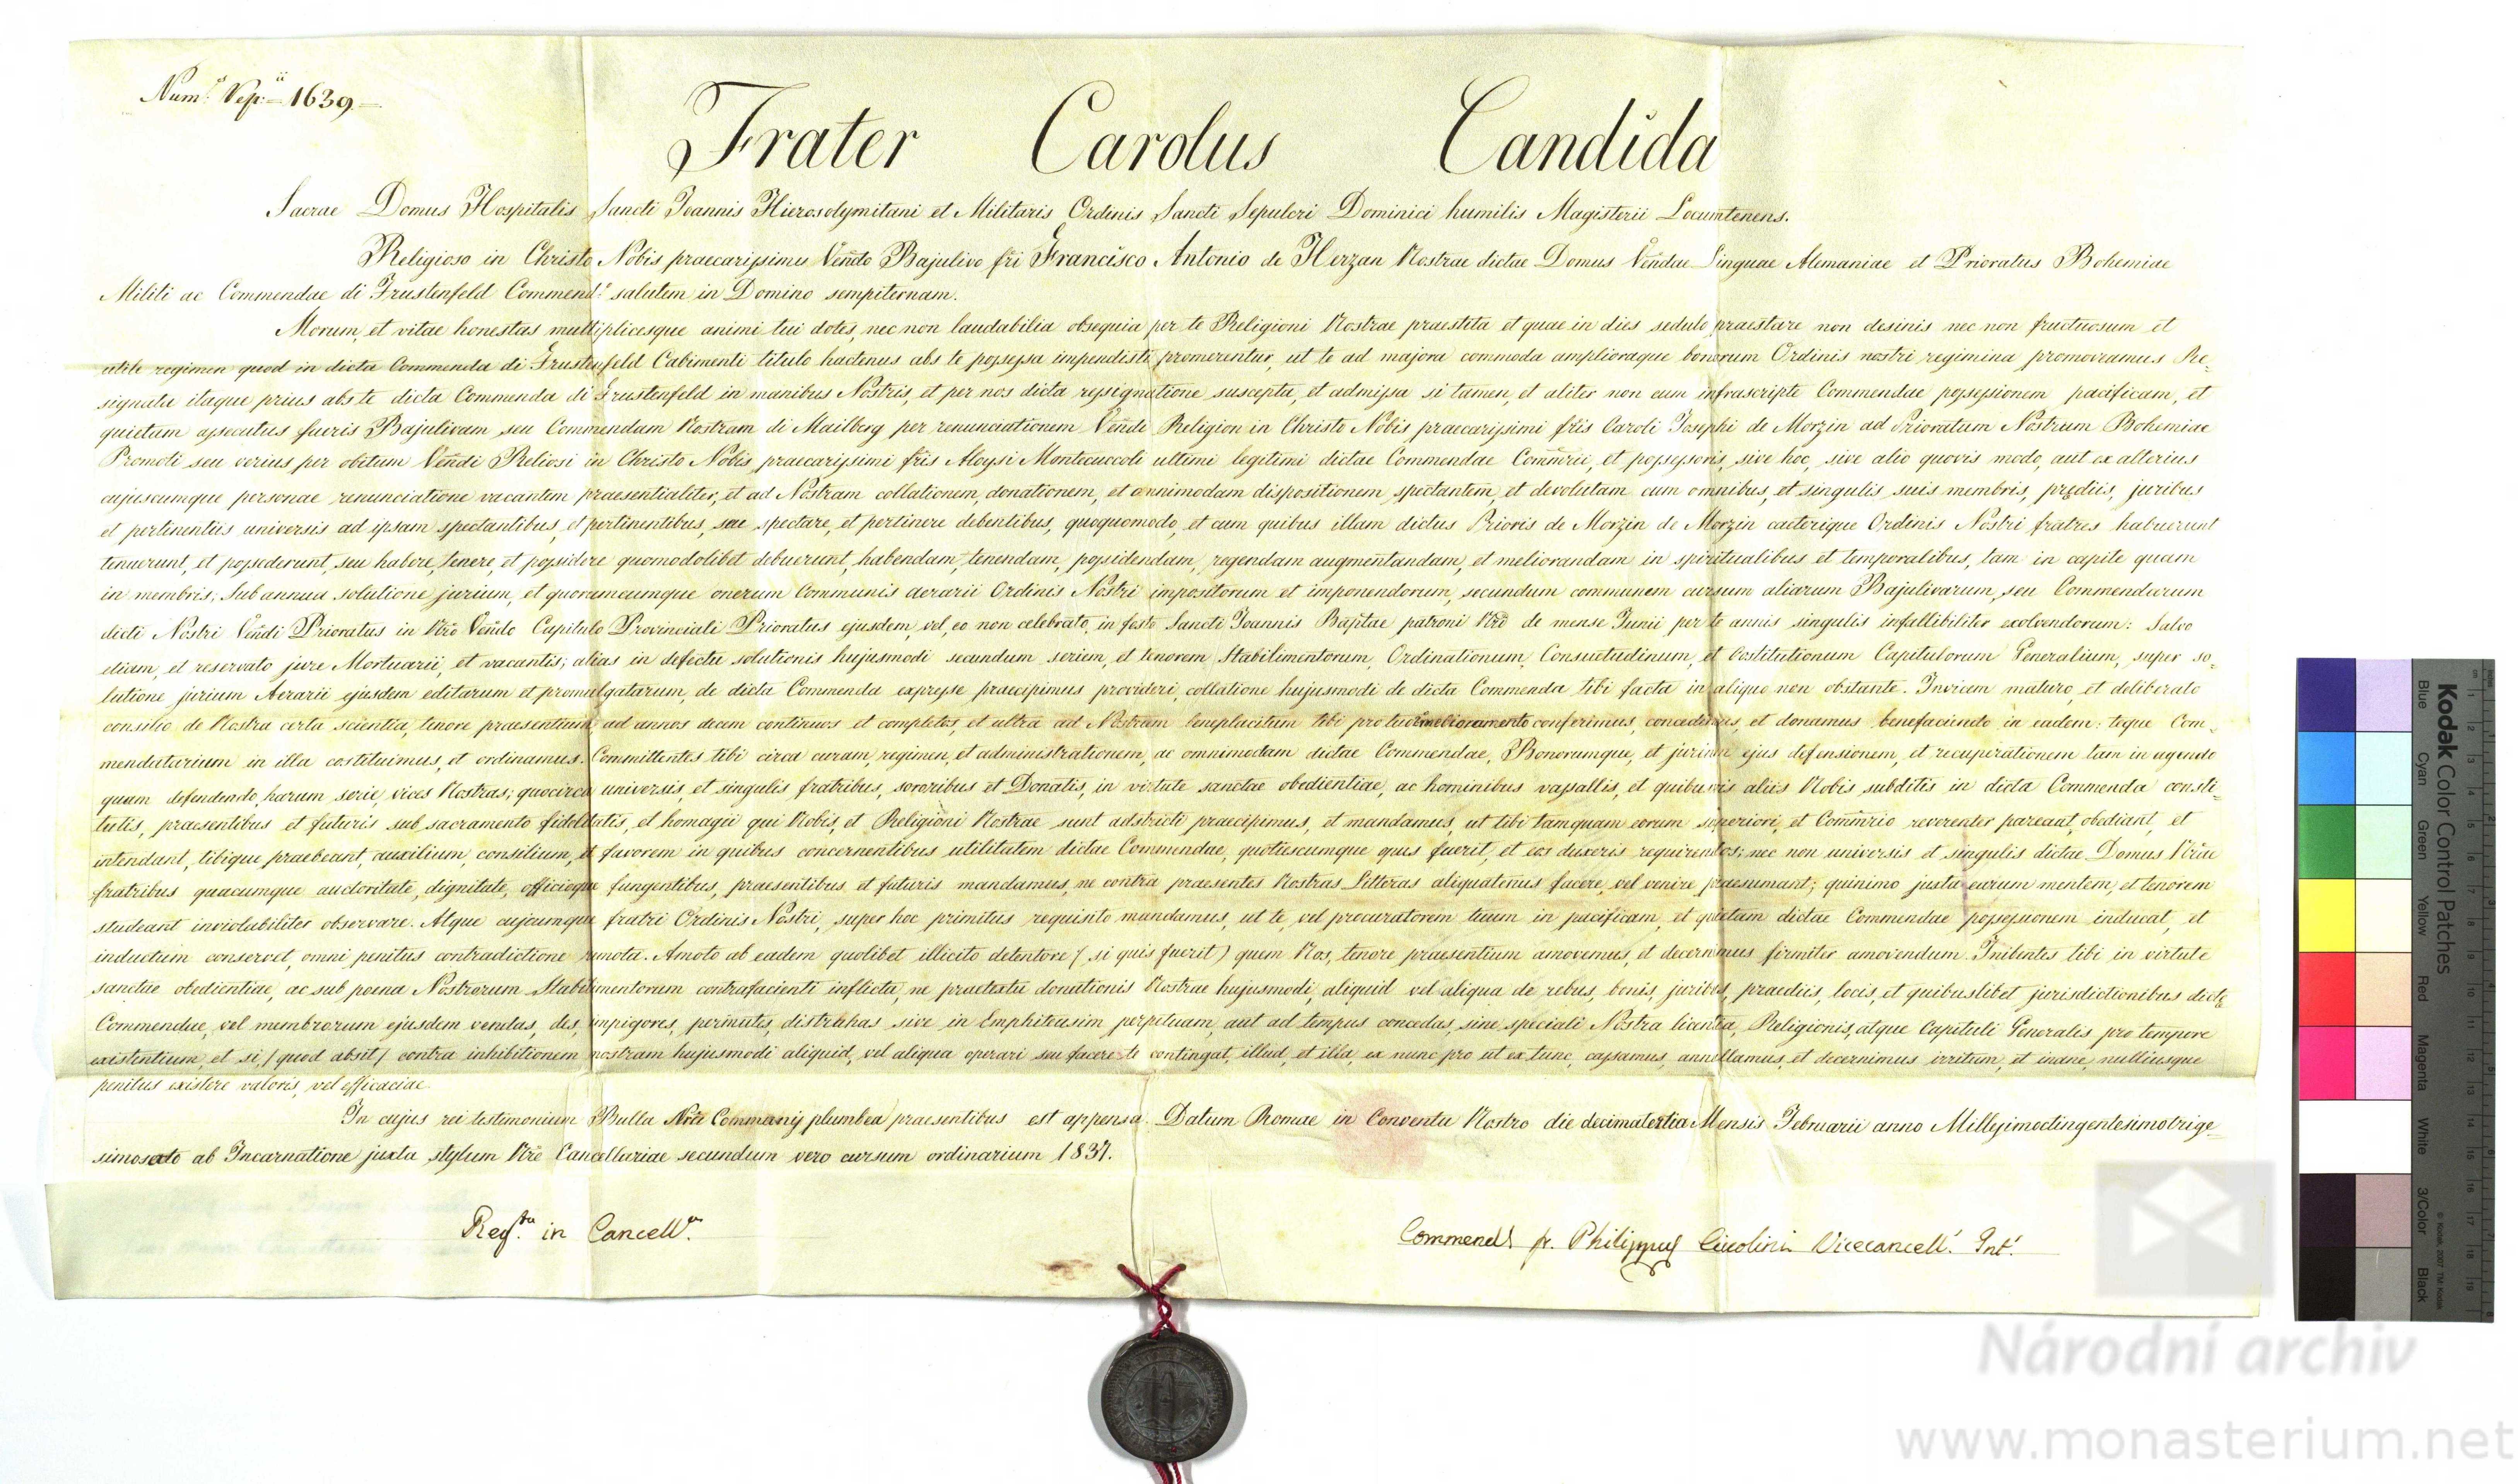 Num.s Rep.ii = 1639 =
Frater Carolus Candida
Sacrae Domus Hospitalis Sancti Joannis Hierosolymitani et Militaris Ordinis Sancti Sepulcri Dominici humilis Magisterii Locumtenens.
Religioso in Christo Nobis praecarissimis Veñdo Bajulivo fri Francisco Antonio de Herzan Nostrae dictae Domus Veñdae Linguae Alemaniae et Prioratus Bohemiae
Militi ac Commendae di Frustenfeld Commend.o salutem in Domino sempiternam.
Morum, et vitae honestas multiplicesque animi tui dotes, nec non laudabilia obsequia per te Religioni Nostrae praestita et quae in dies sedulo praestare non desinis nec non fructuosum et
utile regimen quod in dicta Commenda di Frustenfeld Cabimenti titulo hactenus abs te possessa impendisti promerentur, ut te ad majora commoda amplioraque bonorum Ordinis nostri regimina promoveamus Re-
signata itaque prius abs te dicta Commenda di Frustenfeld in manibus Nostris, et per nos dicta resignatione suscepta, et admissa si tamen, et aliter non cum infrascripte Commendae possessionem pacificam, et
quietam assecutus fueris Bajulivam seu Commendam Nostram di Mailberg per renunciationem Veñdi Religion in Christo Nobis praecarissimi fris Caroli Josephi de Morzin ad Prioratum Nostrum Bohemiae
Promoti seu verius per obitum Veñdi Reliosi in Christo Nobis praecarissimi fris Aloysi Montecuccoli ultimi legitimi dictae Commendae Commrii, et possessoris, sive hoc, sive alio quovis modo, aut ex alterius
cujuscumque personae renunciatione vacantem praesentialiter, et ad Nostram collationem, donationem, et omnimodam dispositionem spectantem, et devolutam cum omnibus, et singulis suis membris, prędiis, juribus
et pertinentiis universis ad ipsam spectantibus, et pertinentibus, seu spectare, et pertinere debentibus, quoquomodo, et cum quibus illam dictus Prioris de Morzin de Morzin caeterique Ordinis Nostri fratres habuerunt
tenuerunt, et possederunt, seu habere, tenere, et possidere quomodolibet debuerunt, habendam, tenendam, possidendam, regendam augmentandam, et meliorandam in spiritualibus et temporalibus, tam in capite quam
in membris; Sub annua solutione jurium, et quorumcumque onerum Communis aerarii Ordinis Nostri impositorum et imponendorum, secundum communem cursum aliarum Bajulivarum, seu Commendarum
dicti Nostri Veñdi Prioratus in Nro Veñdo Capitulo Provinciali Prioratus ejusdem, vel, eo non celebrato, in festo Sancti Joannis Baptae patroni Nri de mense Junii per te annis singulis infallibiliter exolvendorum: Salvo
etiam, et reservato jure Mortuarii, et vacantis; alias in defectu solutionis hujusmodi secundum seriem, et tenorem Stabilimentorum, Ordinationum, Consuetudinum, et Costitutionum Capitulorum Generalium, super so-
lutione jurium Aerarii ejusdem editarum et promulgatarum, de dicta Commenda expresse praecipimus provideri, collatione hujusmodi de dicta Commenda tibi facta in aliquo non obstante. Invicem maturo, et deliberato
consilio de Nostra certa scientia, tenore praesentium, ad annos decem continuos et completos, et ultra ad Nostrum beneplacitum tibi pro tuo melioramento conferimus, concedimus, et donamus benefaciendo in eadem: teque Com-
mendatarium in illa costituimus, et ordinamus. Committentes tibi circa curam, regimen, et administrationem, ac omnimodam dictae Commendae, Bonorumque, et jurium ejus defensionem, et recuperationem tam in agendo
quam defendendo, harum serie, vices Nostras; quocirca universis, et singulis fratribus, sororibus et Donatis, in virtute sanctae obedientiae, ac hominibus vassallis, et quibusvis aliis Nobis subditis in dicta Commenda consti-
tutis, praesentibus et futuris sub sacramento fidelitatis, et homagii qui Nobis, et Religioni Nostrae sunt adstricti praecipimus, et mandamus, ut tibi tamquam eorum superiori, et Commrio reverenter pareant, obediant, et
intendant, tibique praebeant, auxilium, consilium, et favorem in quibus concernentibus utilitatem dictae Commendae, quotiescumque opus fuerit, et eos duxeris requirendos; nec non universis et singulis dictae Domus Nrae
fratribus quacumque auctoritate, dignitate, officioque fungentibus, praesentibus et futuris mandamus, ne contra praesentes Nostras Litteras aliquatenus facere, vel venire praesumant; quinimo justa earum mentem, et tenorem
studeant inviolabiliter observare. Atque cujcumque fratri Ordinis Nostri, super hoc primitus requisito mandamus, ut te, vel procuratorem tuum in pacificam, et quietam dictae Commendae possessionem inducat, et
inductum conservet, omni penitus contradictione remota. Amoto ab eadem quolibet illicito detentore (si quis fuerit) quem Nos, tenore praesentium amovemus, et decernimus firmiter amovendum. Inibentes tibi in virtute
sanctae obedientiae, ac sub poena Nostrorum Stabilimentorum contrafacienti inflicta, ne praetextu donationis Nostrae hujusmodi, aliquid vel aliqua de rebus, bonis, juribus, praediis, locis, et quibuslibet jurisdictionibus dictę
Commendae, vel membrorum ejusdem vendas, des, impigores, permutes, distrahas sive in Emphiteusim perpetuam, aut ad tempus concedas, sine speciali Nostra licentia, Religionis, atque Capituli Generalis pro tempore
existentium, et si (quod absit) contra inhibitionem nostram hujusmodi aliquid, vel aliqua operari seu facere te contingat, illud, et illa, ex nunc pro ut ex tunc, cassamus, annullamus, et decernimus irritum, et inane, nulliusque
penitus existere valoris, vel efficaciae.
In cujus rei testimonium Bulla Nra Communis plumbea praesentibus est appensa. Datum Romae in Conventu Nostro die decimatertia Mensis Februarii anno Millesimoctingentesimotrige-
simosexto ab Incarnatione juxta stylum Nrae Cancellariae secundum vero cursum ordinarium 1837.
Reg.ta in Cancell.a
Commend.s fr. Philippus Ciccolini Vicecancell. Int.
Kodak Color Control Patches
Blue Cyan Green Yellow Red Magenta White 3/Color Black
Národní archiv
www.monasterium.net